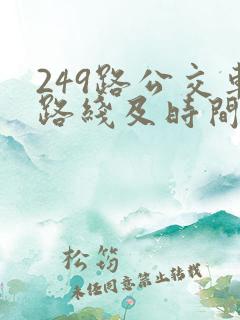 249路公交車
路綫及時間
松筠
未经同意禁止转载